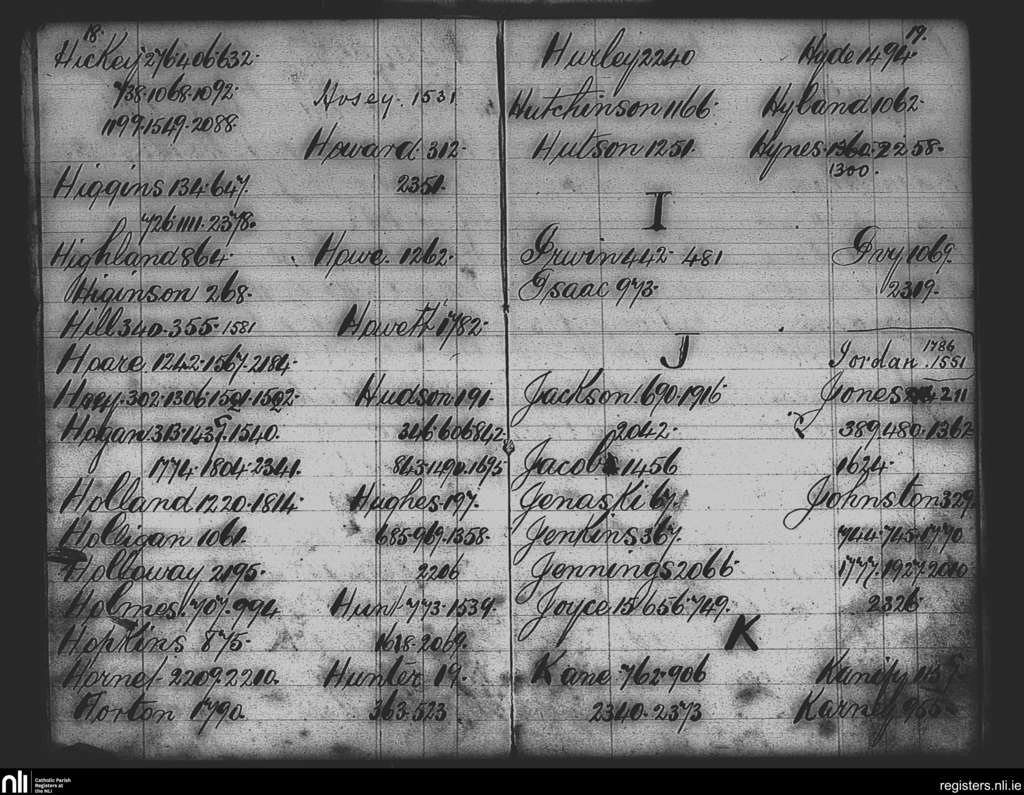 18.
Hickey 276·406·632·
738·1068·1092·
1199·1549·2088·
Higgins 134·647.
726·1111·2378·
Highland 864·
Higinson 268·
Hill 340·355·1581
Hoare 1242·1567·2184·
Hoey·302·1306·1501·1502·
Hogan 313·1439·1540.
1774·1804·2341.
Holland 1220·1814·
Holligan 1061.
Holloway 2195·
Holmes·707·994
Hopkins 875·
Hornet 2209·2210.
Horton 1790.
Hosey. 1531
Howard·312·
2351.
Howe. 1262·
Howeth 1782·
Hudson 191.
346·606·842·
863·1490·1695
Hughes·197.
685·969·1358·
2206
Hunt 773·1539.
1618·2069.
Hunter 19.
363·523
19.
Hurley 2240
Hutchinson 1166·
Hutson 1251·
Hyde 1494·
Hyland 1062·
Hynes·1360·2258·
1300.
I
Irwin 442·481
Isaac 973·
Ivy 1069.
2319.
J
Jackson 1690·1916
2042·
Jacob 1456
Jenaski 67.
Jenkins 367.
Jennings 2066
Joyce 15·656·749.
Jordan 1786
.1551
Jones 211
389·480·1362
1624·
Johnston 329.
744·745·1770
1777·1927·2010
2326·
K
Kane 762·906
2340·2373
Kanify
Karney 955·
nli
Catholic Parish
Registers at
the NLI
registers.nli.ie